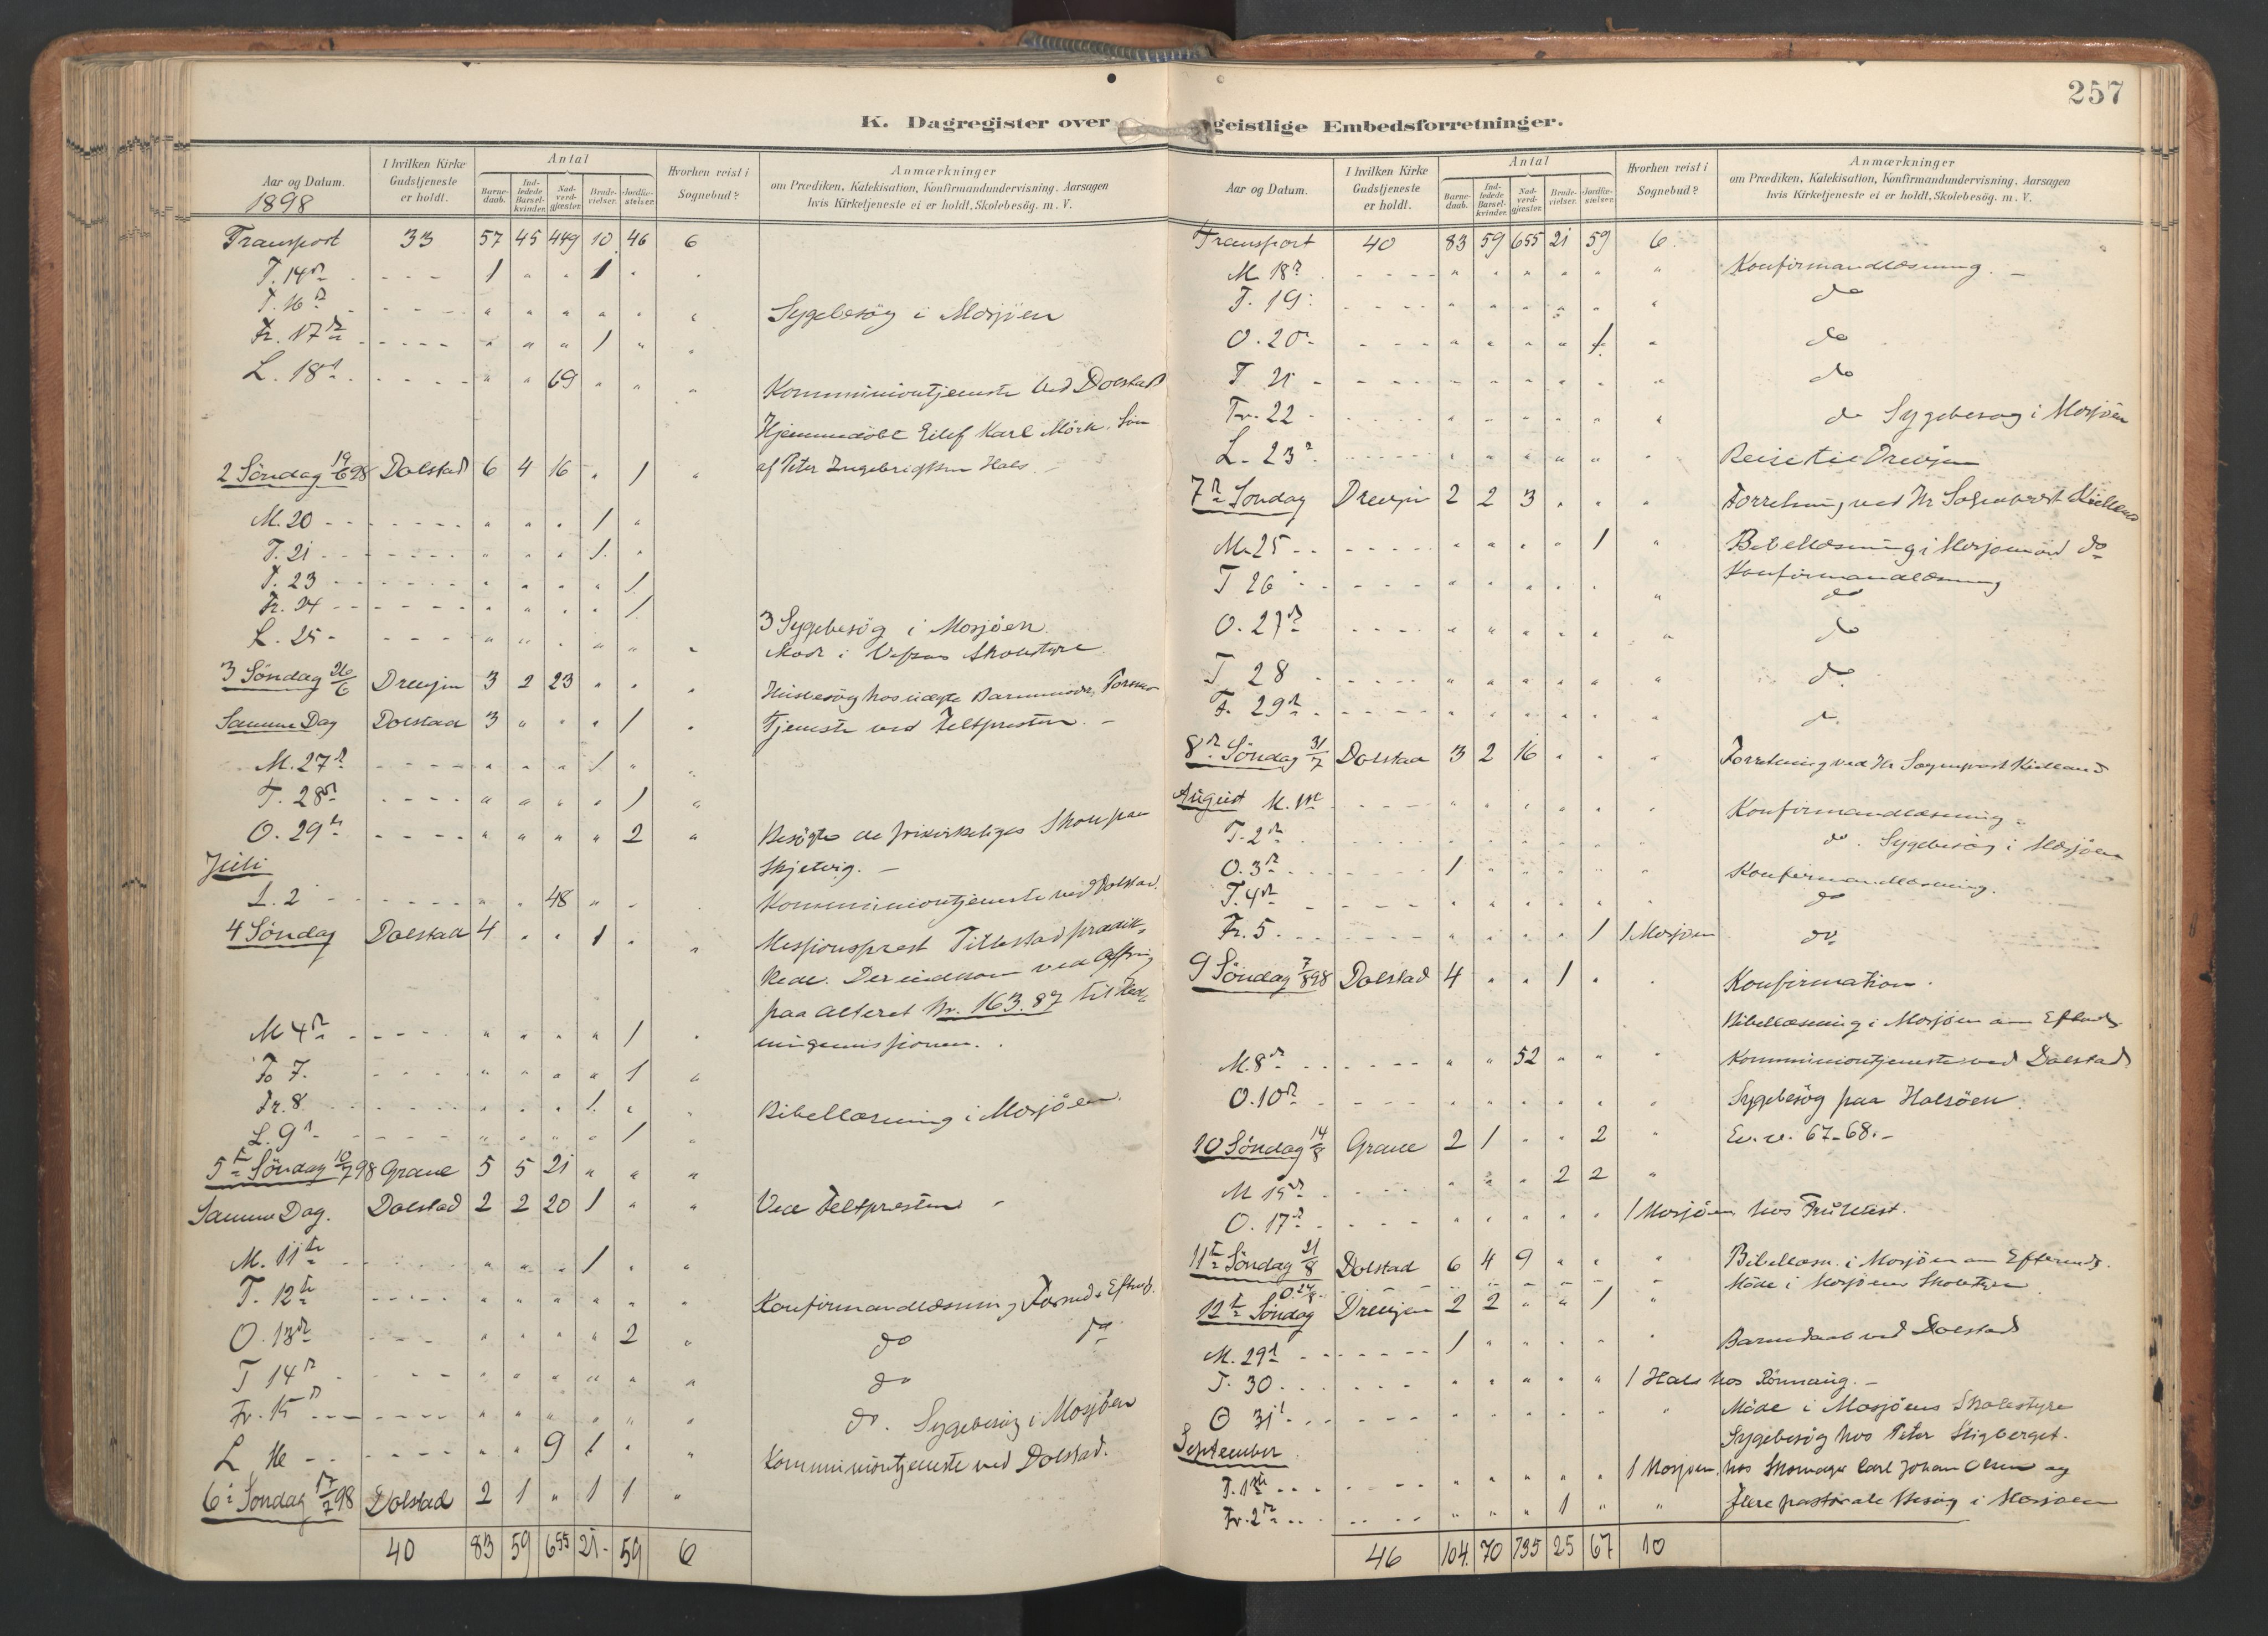 257
K. Dagregister over geistlige Embedsforretninger.
Aar og Datum. 1898 | I hvilken Kirke Gudstjeneste er holdt. | Antal | Barnedaab. | Indledede Barselkvinder. | Nadverdgjæster. | Brudevielser. | Jordfæstelser. | Hvorhen reist i Sognebud? | Anmærkninger om Prædiken, Katekisation, Konfirmandundervisning, Aarsagen hvis Kirketjeneste ei er holdt, Skolebesög. m. V.
Transport 33 57 45 449 10 46 6
T. 14de - - - 1 " " 1 "
T. 16de - - - " " " " " " Sygebesög i Mosjöen
Fr. 17de - - - - " " " 1 " "
L. 18de - - - - " " 69 " " " Kommuniontjeneste ved Dolstad
Hjemmedöbt Eilef Karl Mörk, Sön
2 Söndag 19/6 98 Dolstad 6 4 16 " 1 " af Peter Ingebrigtsen Hals
M. 20 - - - " " " 1 "
T. 21 - - - " " " 1 "
T. 23 - - - " " " " 1
Fr. 24 - - - " " " " 1
L. 25 - - - - " " " " " 3 Sygebesög i Mosjöen
Möde i Vefsns Skolestyre
3 Söndag 26/6 Drevjen 3 2 23 " " " Husbesög hos
Samme Dag Dolstad 3 " " " 1 " Tjeneste ved Feltpresten. -
M. 27de - - - - " " " 1 " "
T. 28de - - - - " " " " 1 "
O. 29de - - - - " " " " 2 " Besögte de frikirkeliges Skole paa
Juli Skjelvig. -
L. 2 - - - - " " 48 " " Kommuniontjeneste ved Dolstad.
4 Söndag Dolstad 4 " " 1 " " Missionsprest Tillestad prædik-
kede. Der indkom ved Offring
paa Alteret Kr. 163.87 til Hed-
M 4de - - - - " " " " 1 " ningemissjonen.
To 7. - - - - " " " " 1 "
Fr. 8 - - - - " " " 1 " " Bibellæsning i Mosjöen.
L. 9de - - - - " " " " 1 "
5te Söndag 10/7 98 Grane 5 5 21 " " "
Samme Dag. Dolstad 2 2 20 1 " " Ved Feltpresten -
M. 11te - - - - " " " 1 " "
T. 12te - - - - " " " " " " Konfirmandlæsning Formd & Eftmd.
O. 13de - - - " " " " 2 " do do
T 14de - - - " " " " " " do
Fr. 15de - - - - " " " " " " do. Sygebesög i Mosjöen
L 16 - - - - " " 9 1 " " Kommuniontjeneste ved Dolstad.
6te Söndag 17/7 98 Dolstad 2 1 " 1 1 "
40 83 59 655 21 59 6
Aar og Datum. | I hvilken Kirke Gudstjeneste er holdt. | Antal | Barnedaab. | Indledede Barselkvinder. | Nadverdgjæster. | Brudevielser. | Jordfæstelser. | Hvorhen reist i Sognebud? | Anmærkninger om Prædiken, Katekisation, Konfirmandundervisning, Aarsagen hvis Kirketjeneste ei er holdt, Skolebesög. m. V.
Transport 40 83 59 655 21 59 6
M. 18de - - - - " " " " " " Konfirmandlæsning. -
T. 19 - - - - " " " " " " do
O. 20 - - - - " " " " 1 " do
T 21 - - - - " " " " " " do
Fr. 22 - - - - " " " " " " do Sygebesög i Mosjöen
L. 23de - - - - " " " " " " Reise til Drevjen
7de Söndag Drevjen 2 2 3 " " " Forretning ved Hr Sogneprest Kielland
M. 25 - - - - " " " " 1 " Bibellæsning i Mosjöen ved do
T 26 - - - - " " " " " Konfirmandlæsning
" do
O. 27de - - - - " " " " " " do
T 28 - - - - " " " " " " do
F. 29de - - - - " " " " " " do
8de Söndag 31/7 Dolstad 3 2 16 " " " Forretning ved Hr Sogneprest Kielland
August M. 1ste - - - - " " " " " " Konfirmandlæsning
T. 2de - - - - " " " " " " do. Sygebesög i Mosjöen
O. 3de - - - - 1 " " " " " Konfirmandlæsning.
T. 4de - - - - " " " " " " do
Fr. 5. - - - - " " " " 1 1 Mosjöen do
9 Söndag 7/8 98 Dolstad 4 " " 1 " " Konfirmation.
Bibellæsning i Mosjöen om Eftmd.
M. 8de - - - - " " 52 " " " Kommuniontjeneste ved Dolstad
O. 10de - - - - " " " " " " Sygebesög paa Halsöen.
10 Söndag 14/8 Grane 2 1 " " 2 " Ev. v. 67-68. -
M 15de - - - - " " " 2 2 "
O. 17de - - - - " " " " " 1 Mosjöen hos Fru
11te Söndag 21/8 Dolstad 6 4 9 " " " Bibellæsn. i Mosjöen om Eftermd.
O 24/8 - Möde i Mosjöens Skolestyre
12te Söndag Drevjen 2 2 " " 1 "
M. 29de - - - - 1 " " " " " Barnedaab ved Dolstad
T. 30. - - - - " " " " " 1 Hals hos Rönnaug. -
O 31te - - - - " " " " " " Möde i Mosjöens Skolestyre
September Sygebesög hos Peter Stigberget.
T. 1ste - - - - " " " " " 1 Mosjöen, hos Skomager Carl Johan Olsen og
Fr. 2de - - - - " " " 1 " " flere pastorale Besög i Mosjöen
46 104. 70 735 25 67 10